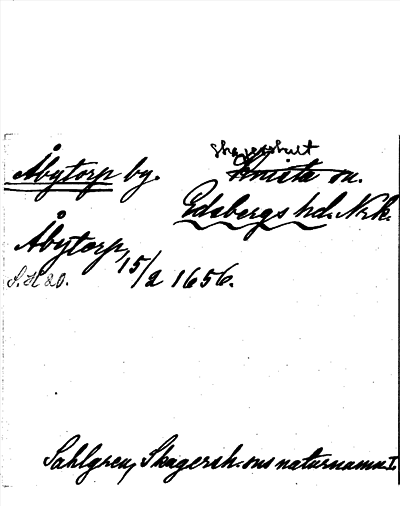 Skagershult
Åbytorp by. Knista sn.
Edsbergs hd. Nrk.
Åbytorp, 15/2 1656.
Sahlgren, Skagersh.-sns naturnamn I